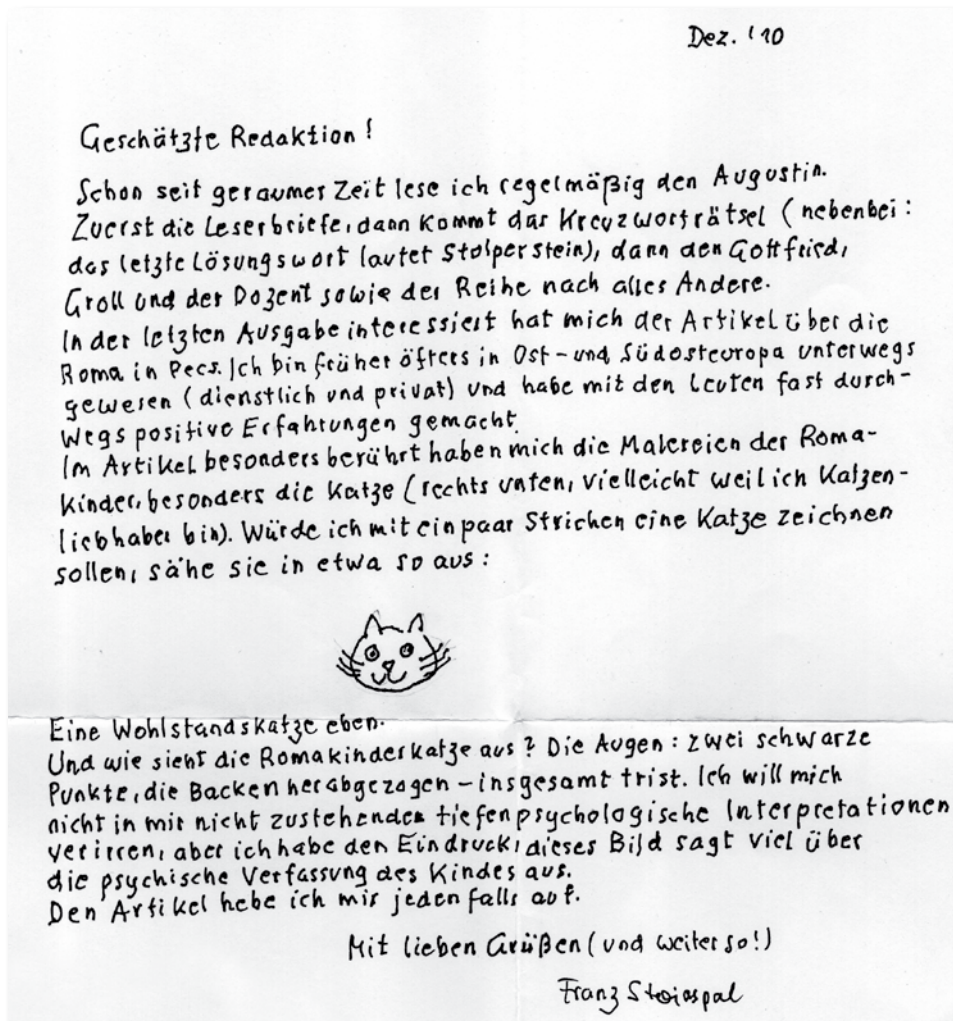 Dez. '10
Geschätzte Redaktion!
Schon seit geraumer Zeit lese ich regelmäßig den Augustin.
Zuerst die Leserbriefe, dann kommt das Kreuzworträtsel (nebenbei:
das letzte Lösungswort lautet Stolperstein), dann den Gottfried,
Groll und der Dozent sowie der Reihe nach alles Andere.
In der letzten Ausgabe interessiert hat mich der Artikel über die
Roma in Pecs. Ich bin früher öfters in Ost- und Südosteuropa unterwegs
gewesen (dienstlich und privat) und habe mit den Leuten fast durch-
wegs positive Erfahrungen gemacht.
Im Artikel besonders berührt haben mich die Malereien der Roma-
kinder, besonders die Katze (rechts unten, vielleicht weil ich Katzen-
liebhaber bin). Würde ich mit ein paar Strichen eine Katze zeichnen
sollen, sähe sie in etwa so aus:
Eine Wohlstandskatze eben.
Und wie sieht die Romakinderkatze aus? Die Augen: zwei schwarze
Punkte, die Backen herabgezogen – insgesamt trist. Ich will mich
nicht in mir nicht zustehende tiefenpsychologische Interpretationen
verirren, aber ich habe den Eindruck, dieses Bild sagt viel über
die psychische Verfassung des Kindes aus.
Den Artikel hebe ich mir jedenfalls auf.
Mit lieben Grüßen (und weiter so!)
Franz